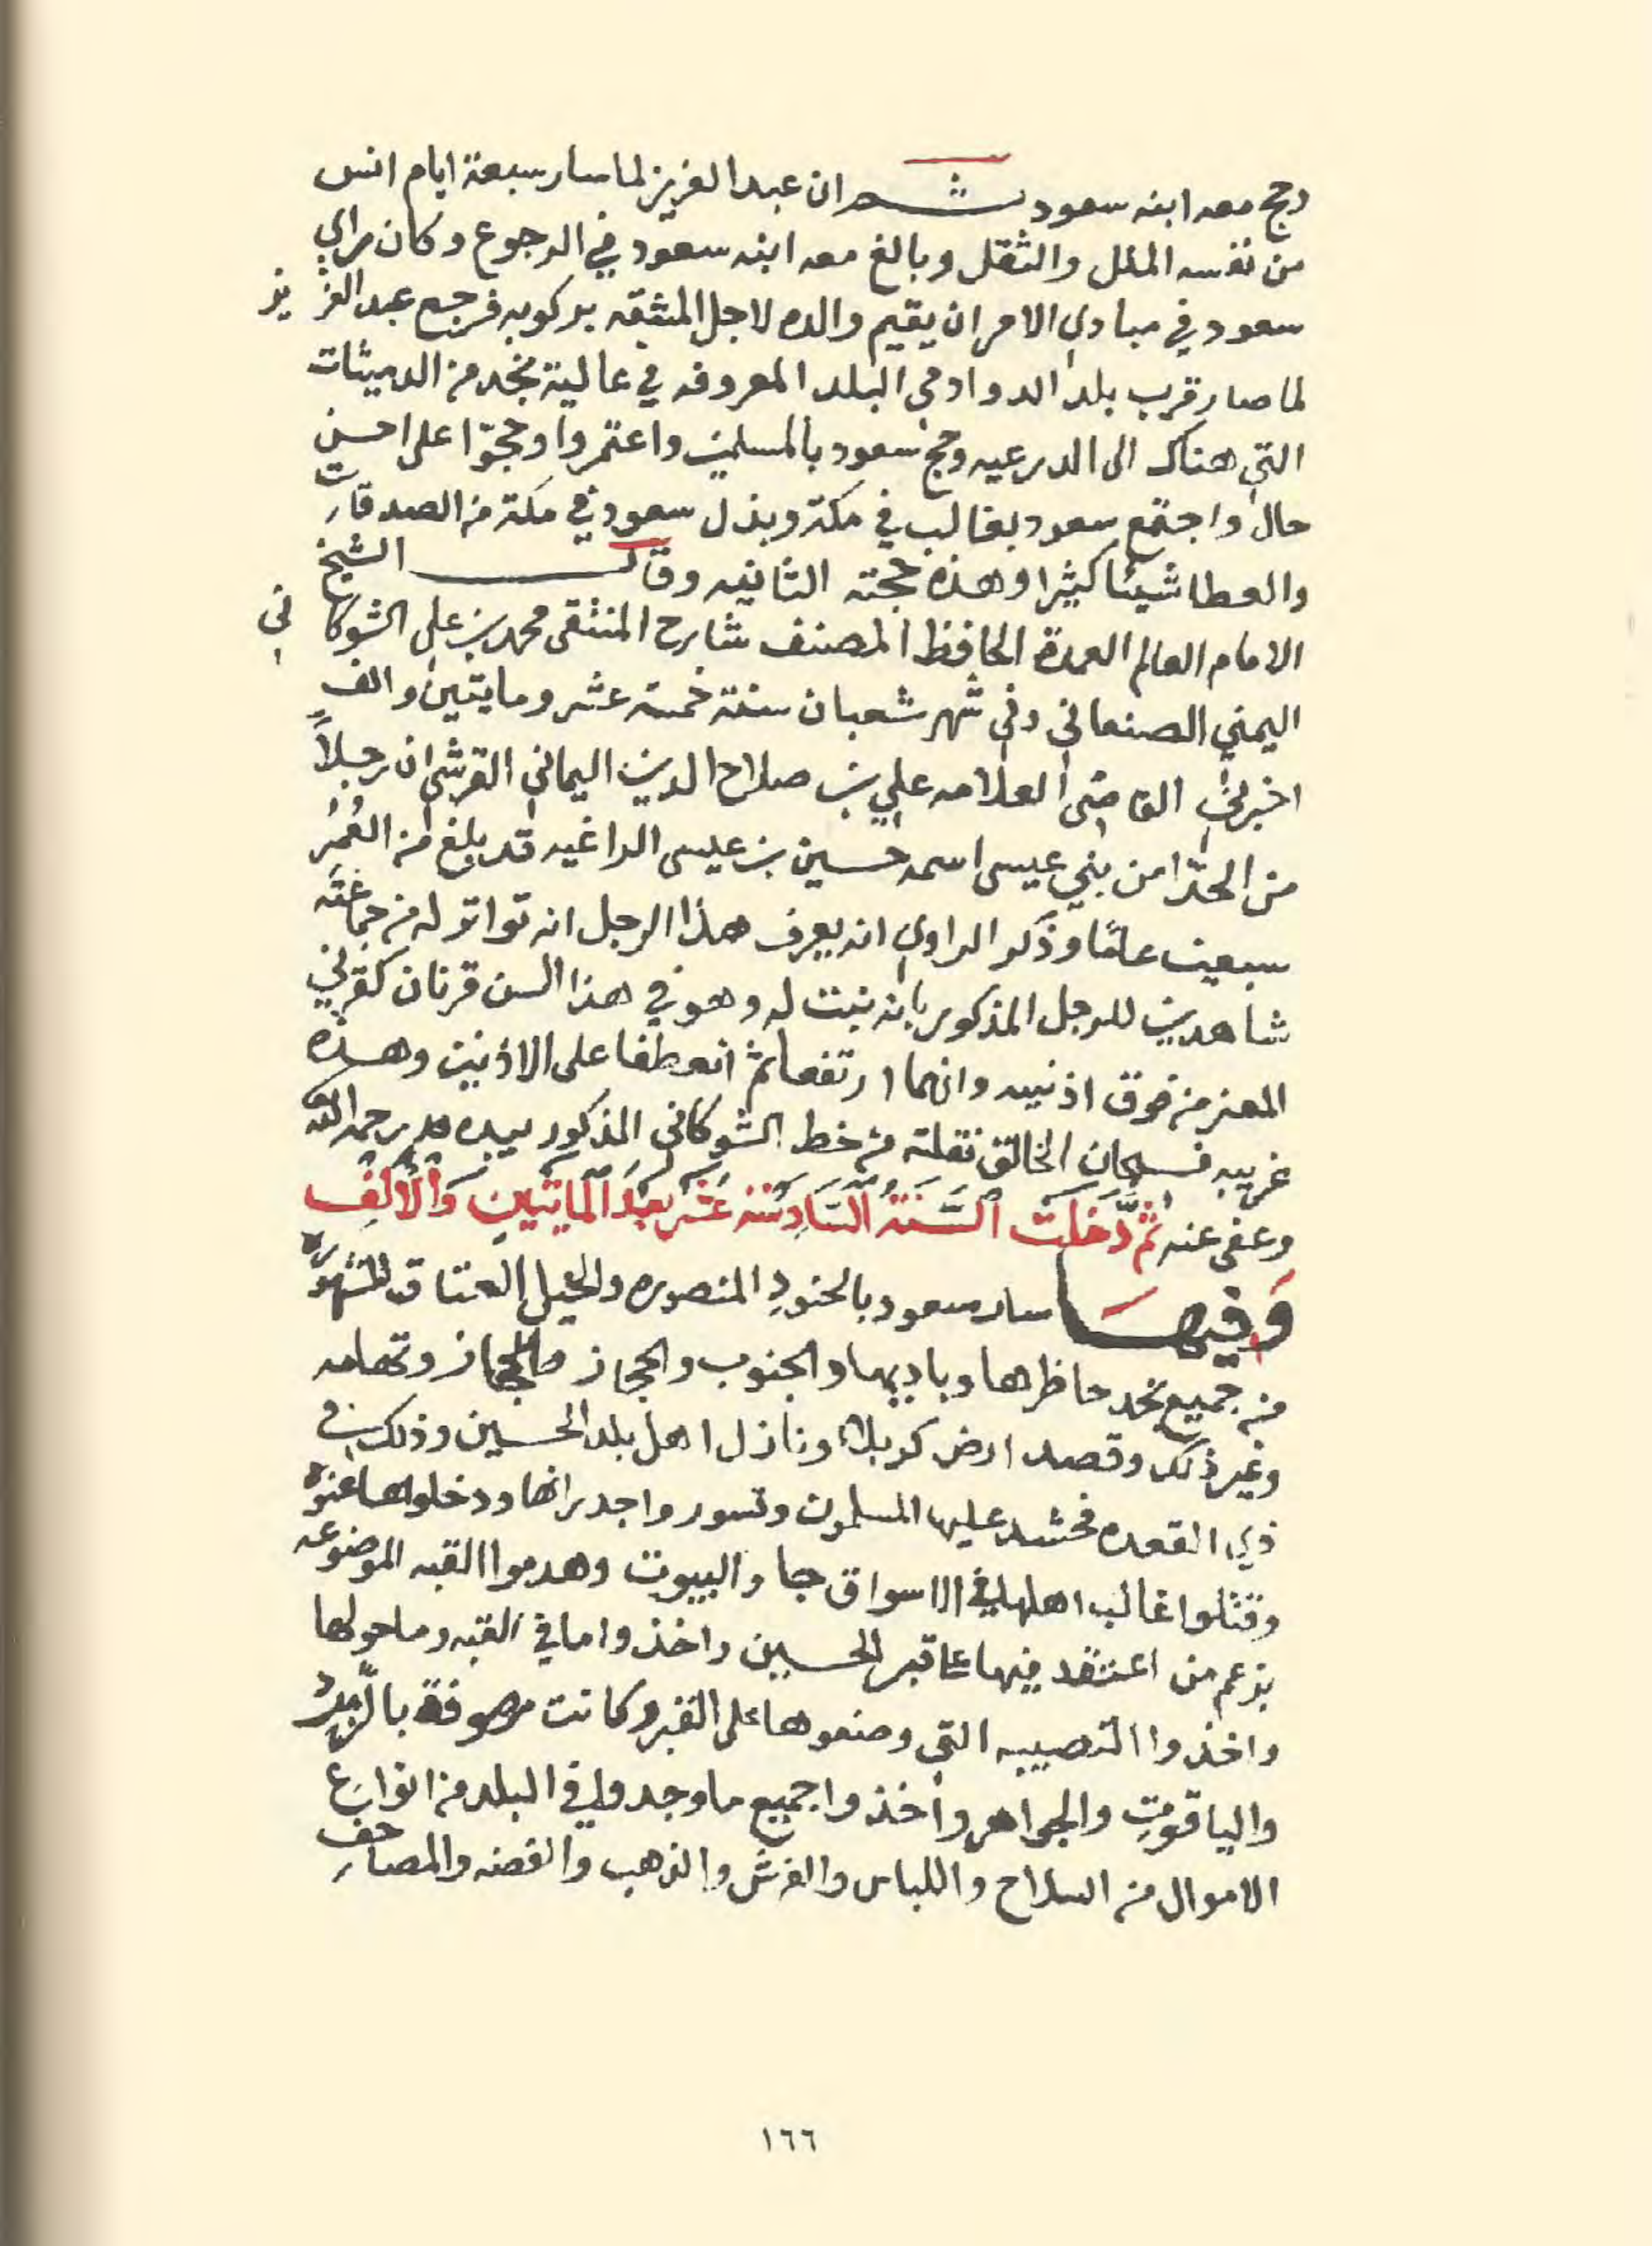 وحج معه ابنه سعود ثم ان عبد العزيز لما سار سبعة ايام انس
من نفسه الملل والثقل وبالغ معه ابنه سعود في الرجوع وكان مراي
سعود في مبادي الامر ان يقيم والده لاجل المشقه بركوبه فرجع عبد العزيز
لما صار قرب بلد الدوادمي البلد المعروفه في عالية نجد من الدميثات
التي هناك الى الدرعيه وحج سعود بالمسلمين واعتمروا وحجوّا على احسن
حال واجتمع سعود بغالب في مكة وبذل سعود في مكة من الصدقات
والعطا شيئا كثيرا وهذه حجته الثانيه وقال الشيخ
الامام العالم العمدة الحافظ المصنف شارح المنتقى محمد بن علي الشوكاني
اليمني الصنعاني وفي شهر شعبان سنة خمسة عشر ومايتين والف
اخبرني القاضي العلامه علي بن صلاح الدين اليماني القرشي ان رجلاً
من الحدّا من بني عيسى اسمه حسين بن عيسى الداغيه قد بلغ من العُمُر
سبعين عامًا وذكر الراوي انه يعرف هذا الرجل انه تواتر له من جماعَة
شاهدين للرجل المذكور بانه نبت له وهو في هذا السن قرنان كقرني
المعز من فوق اذنيه وانهما ارتفعا ثم انعطفا على الاذنين وهذه
غريبه فسبحان الخالق نقلته من خط الشوكاني المذكور بيده رحمه الله
وعفى عنه ثُمَّ دَخَلَت السَّنَةُ السَّادِسَة عَشَر بَعدَ المايَتَينِ وَالأَلفِ
وَفيهَا سار سعود بالجنودِ المنصوره والخيل العتاق المشهوره
من جميع نجد حاظرها وباديها والجنوب والحجاز وتهامه
وغير ذلك وقصد ارض كربلاء ونازل اهل بلد الحسين وذلك في
ذي القعده فحشد عليها المسلمون وتسوروا جدرانها ودخلوها عنوه
وقتلوا غالب اهلها في الاسواق والبيوت وهدموا القبه الموضوعه
بزعم من اعتقد فيها على قبر الحسين واخذوا ما في القبه وما حولها
واخذوا النصيبه التي وضعوها على القبر وكانت مرصوفة بالزّمرد
والياقوت والجواهر وأخذوا جميع ما وجدوا في البلد من انواع
الاموال من السلاح واللباس والفرش والذهب والفضه والمصاحف
١٦٦